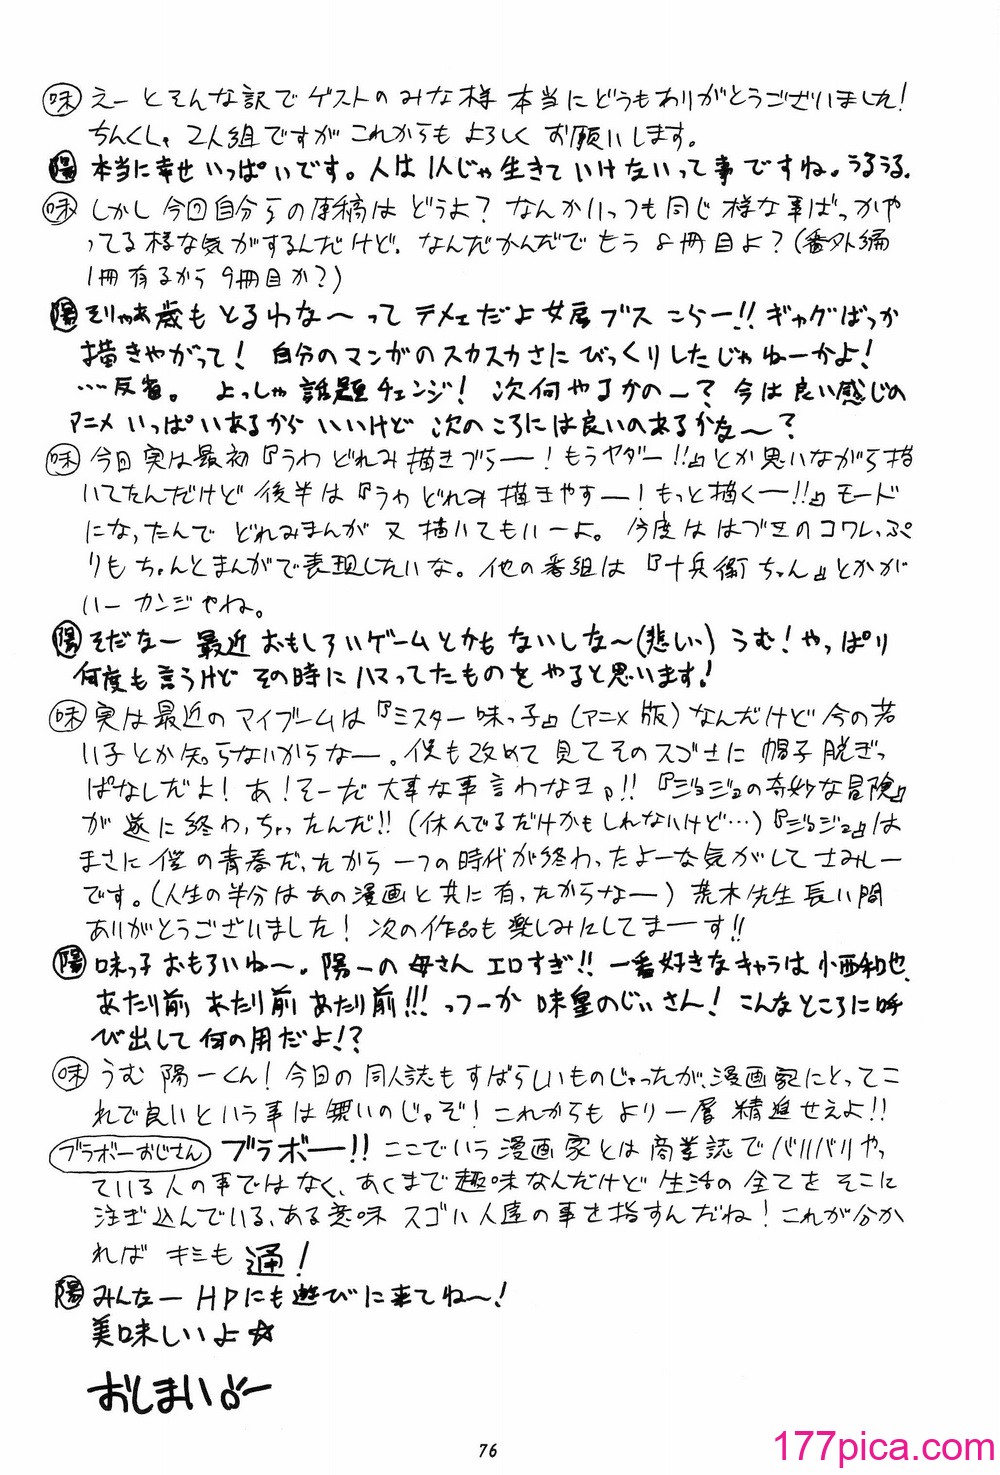 味 えーとそんな訳でゲストのみな様 本当にどうもありがとうございました!
ちんくしゃ2人組ですが これからも よろしく お願いします。
陽 本当に幸せ いっぱいです。人は1人じゃ生きて いけないって事ですね。うるうる。
味 しかし今回自分らの原稿は どうよ? なんかいっつも同じ様な事ばっかや
ってる様な気がするんだけど。なんだかんだでもう8冊目よ?(番外編
1冊有るから9冊目か?)
陽 そりゃあ歳もとるわな〜ってテメェだよ ブス こらー!! ギャグばっか
描きやがって! 自分のマンガのスカスカさに びっくりしたじゃねーかよ!
……反省。 よっしゃ話題チェンジ! 次何やるかの〜? 今は良い感じの
アニメ いっぱいあるから いいけど 次のころには良いのあるかな〜?
味 今回実は最初『うわ どれみ描きづらー!もうヤダー!!』とか思いながら描
いてたんだけど 後半は『うわ どれみ 描きやすー!もっと描くー!!』モード
になったんで どれみまんが 又 描いてもいーよ。今度は はづきのコワレっぷ
りも ちゃんとまんがで表現したいな。他の番組は『十兵衛ちゃん』とかが
いー カンジやね。
陽 そだなー 最近 おもしろいゲームとかも ないしな〜(悲しい) うむ! やっぱり
何度も言うけど その時にハマってたものをやると思います!
味 実は最近のマイブームは『ミスター味っ子』(アニメ版)なんだけど今の若
い子とか知らないからなー。僕も改めて見てそのスゴさに 帽子 脱ぎっ
ぱなしだよ! あ!そーだ 大事な事言わなきゃ!!『ジョジョの奇妙な冒険』
が 遂に終わっちゃったんだ!!(休んでるだけかもしれないけど…)『ジョジョ』は
まさに僕の青春だったから一つの時代が終わったよーな気がしてさみしー
です。(人生の半分はあの漫画と共に有ったからなー) 荒木先生長い間
ありがとうございました! 次の作品も楽しみにしてまーす!!
陽 味っ子おもろいね〜。陽一の母さん エロすぎ!! 一番好きなキャラは小西和也。
あたり前 あたり前 あたり前!!! っつーか 味皇のじぃさん! こんなところに呼
び出して何の用だよ!?
味 うむ 陽一くん! 今回の同人誌もすばらしいものじゃったが、漫画家にとってこ
れで良いという事は無いのじゃぞ! これからも より一層 精進せえよ!!
ブラボーおじさん ブラボー!! ここでいう漫画家とは商業誌でバリバリやっ
ている人の事ではなく、あくまで趣味なんだけど 生活の全てをそこに
注ぎ込んでいる、ある意味 スゴい人達の事を指すんだね! これが分か
れば キミも 通!
陽 みんなー HPにも遊びに来てね〜!
美味しいよ☆
おしまい
76
177pica.com